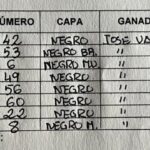 NÚMERO CAPA GANAD
42 NEGRO JOSE VA
53 NEGRO BR. "
6 NEGRO MU. "
49 NEGRO "
56 NEGRO "
60 NEGRO "
22 NEGRO "
8 NEGRO M. "